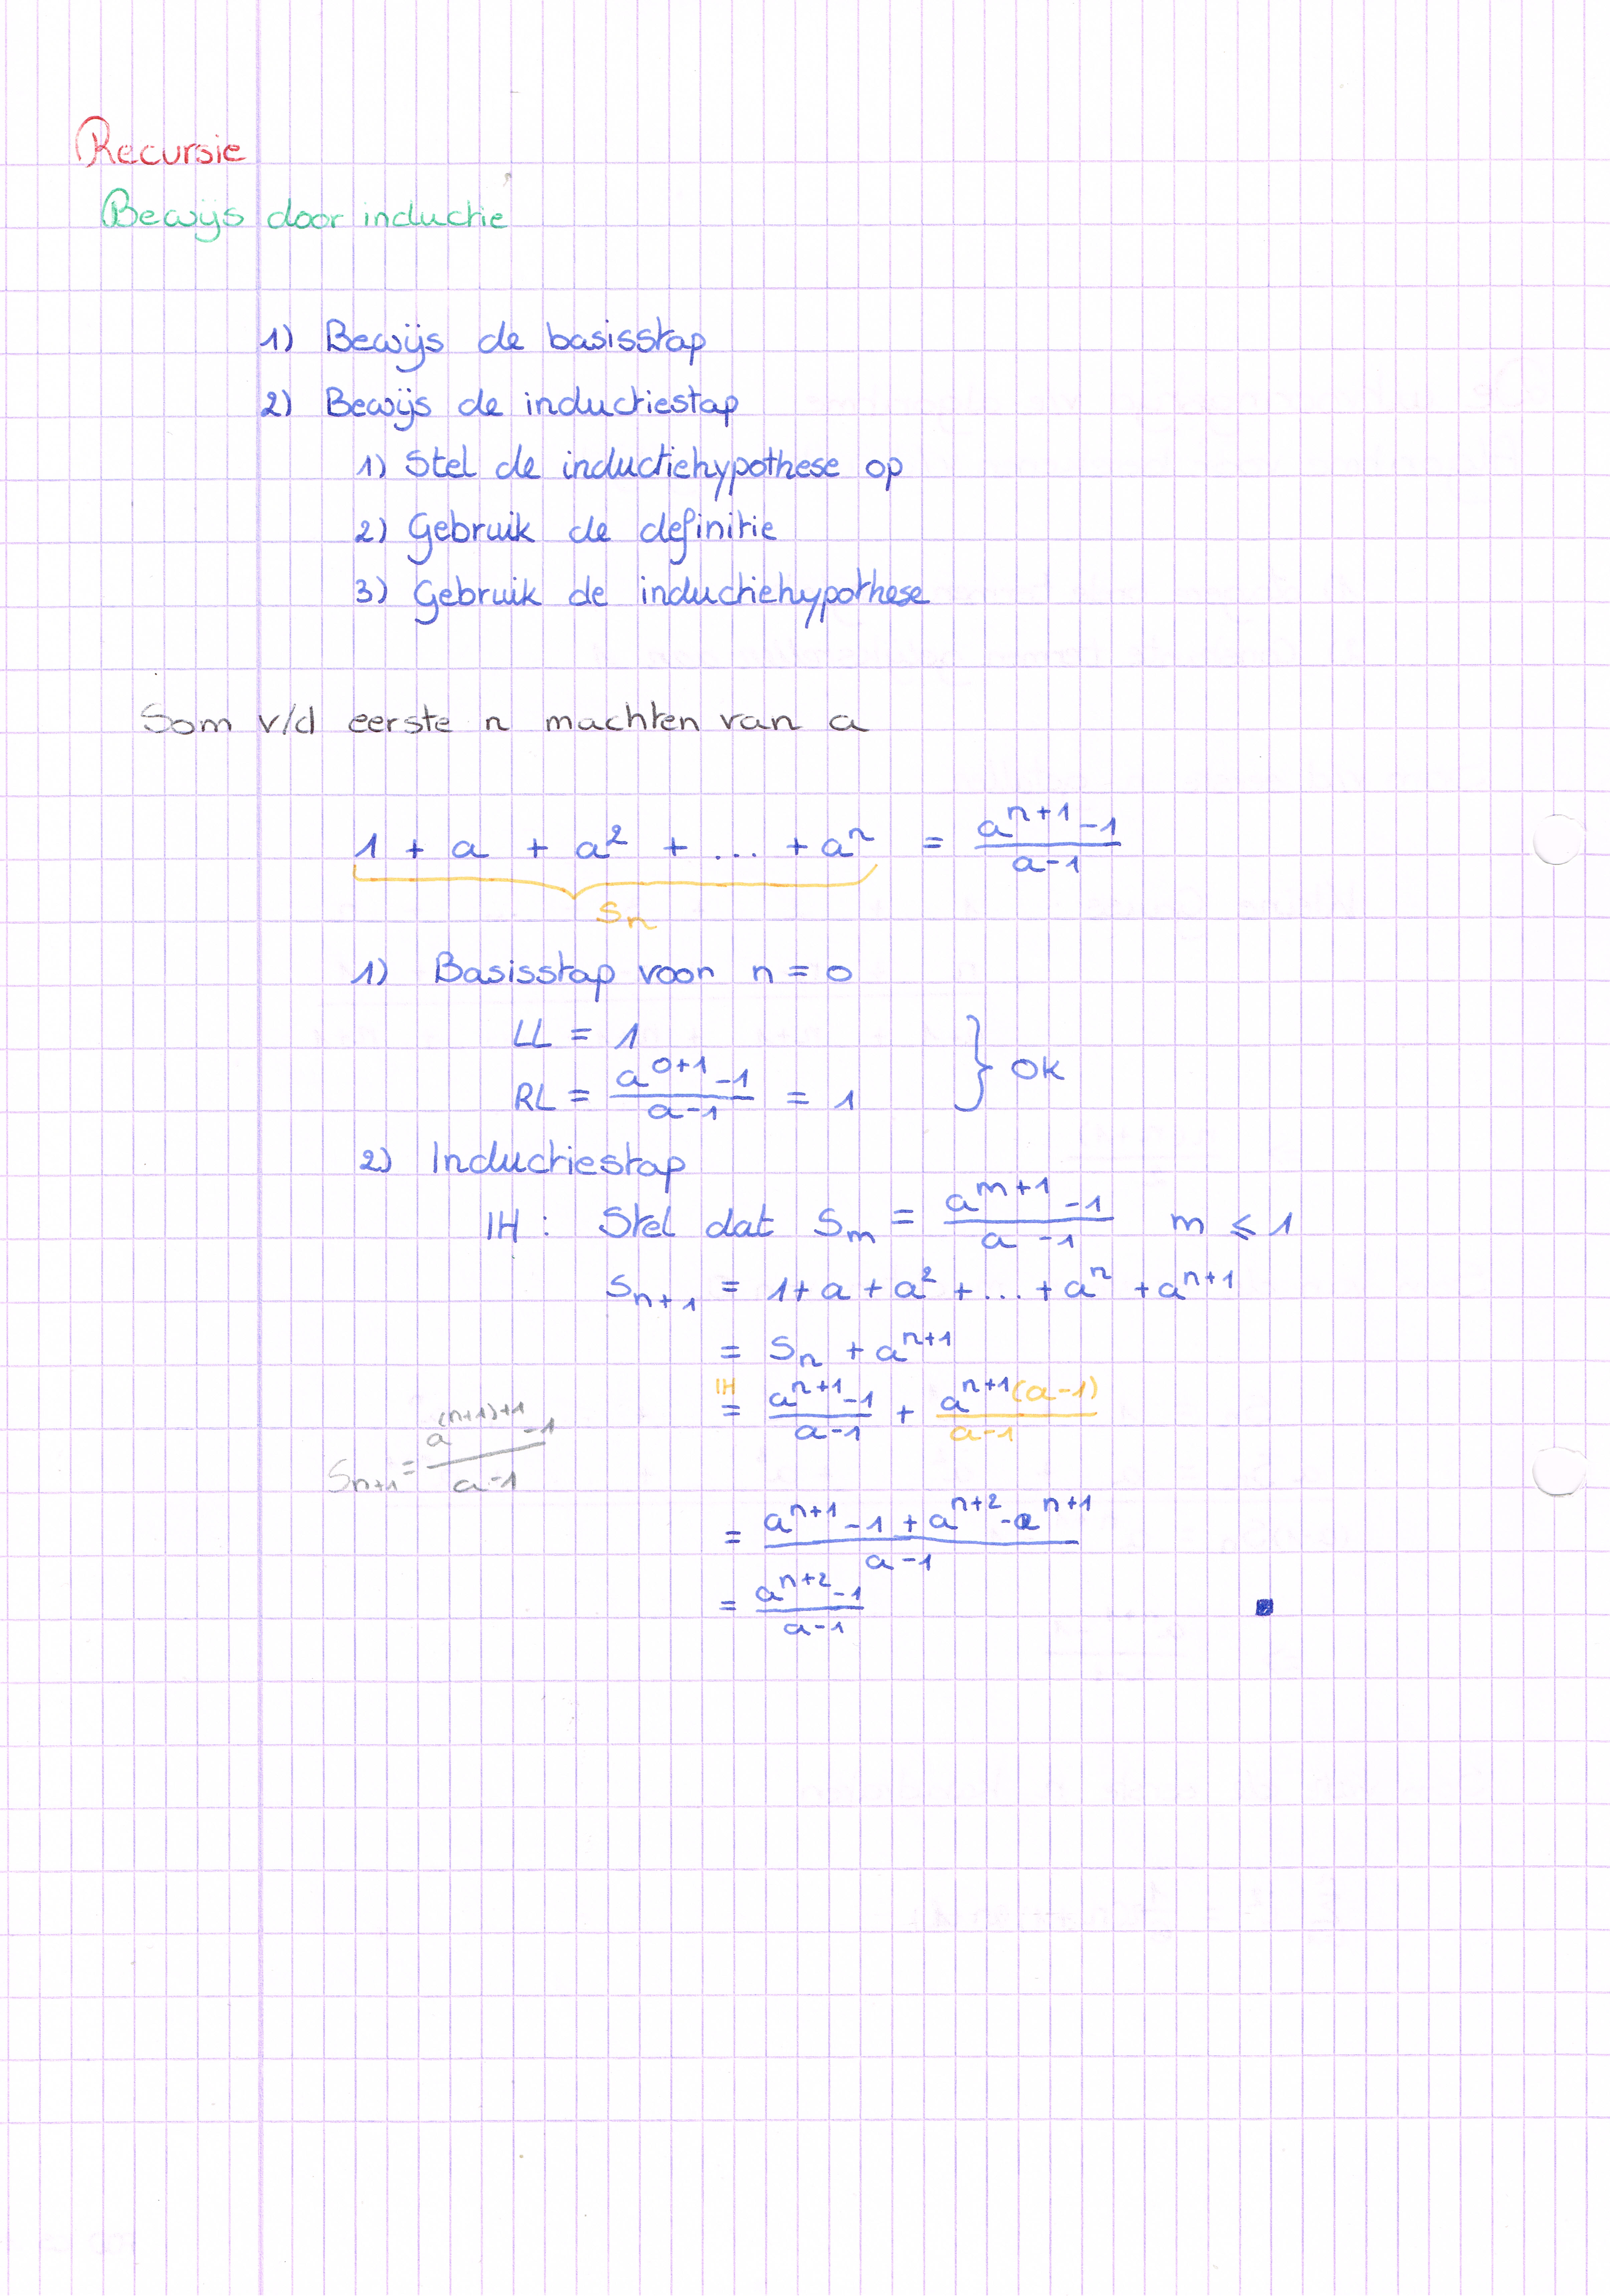 Recursie
Bewijs door inductie
1) Bewijs de basisstap
2) Bewijs de inductiestap
1) Stel de inductiehypothese op
2) Gebruik de definitie
3) Gebruik de inductiehypothese
Som v/d eerste n machten van a
1 + a + a² + ... + aⁿ = (a^{n+1} - 1)/(a - 1)
Sₙ
1) Basisstap voor n = 0
LL = 1
RL = (a^{0+1} - 1)/(a - 1) = 1 } OK
2) Inductiestap
IH : Stel dat S_m = (a^{m+1} - 1)/(a - 1) m ⩽ 1
S_{n+1} = 1 + a + a² + ... + aⁿ + a^{n+1}
= Sₙ + a^{n+1}
IH = (a^{n+1} - 1)/(a - 1) + (a^{n+1}(a - 1))/(a - 1)
S_{n+1} = (a^{(n+1)+1} - 1)/(a - 1)
= (a^{n+1} - 1 + a^{n+2} - a^{n+1})/(a - 1)
= (a^{n+2} - 1)/(a - 1) ■